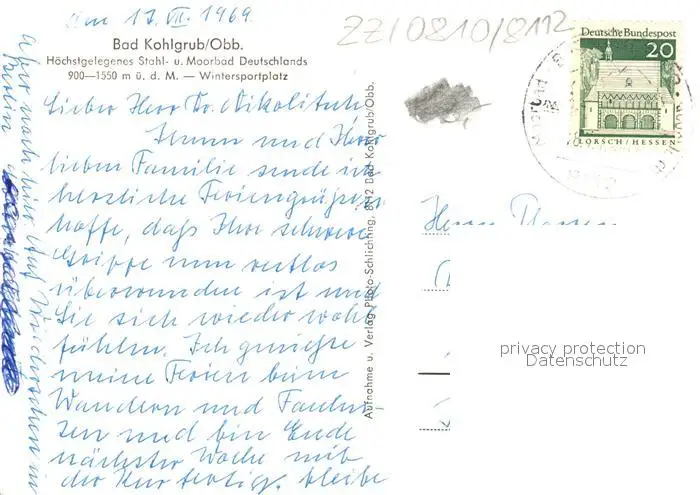 am 17. VII. 1969
ZZ/0810/8112
Bad Kohlgrub/Obb.
Höchstgelegenes Stahl- u. Moorbad Deutschlands
900—1550 m ü. d. M. — Wintersportplatz
Lieber Herr Dr.
Ihnen und Ihrer
lieben Familie sende ich
herzliche Feriengrüße,
hoffe, daß Ihre schwere
Grippe nun restlos
überwunden ist und
Sie sich wieder wohl
fühlen. Ich genieße
meine Ferien beim
Wandern und Faulen-
zen und bin Ende
nächster Woche mit
der Kur fertig, bleibe
aber noch hier. Auf Wiedersehen in
Aufnahme u. Verlag Photo-Schlichting, 8112 Bad Kohlgrub/Obb.
Deutsche Bundespost
20
LORSCH/HESSEN
Herrn
privacy protection
Datenschutz